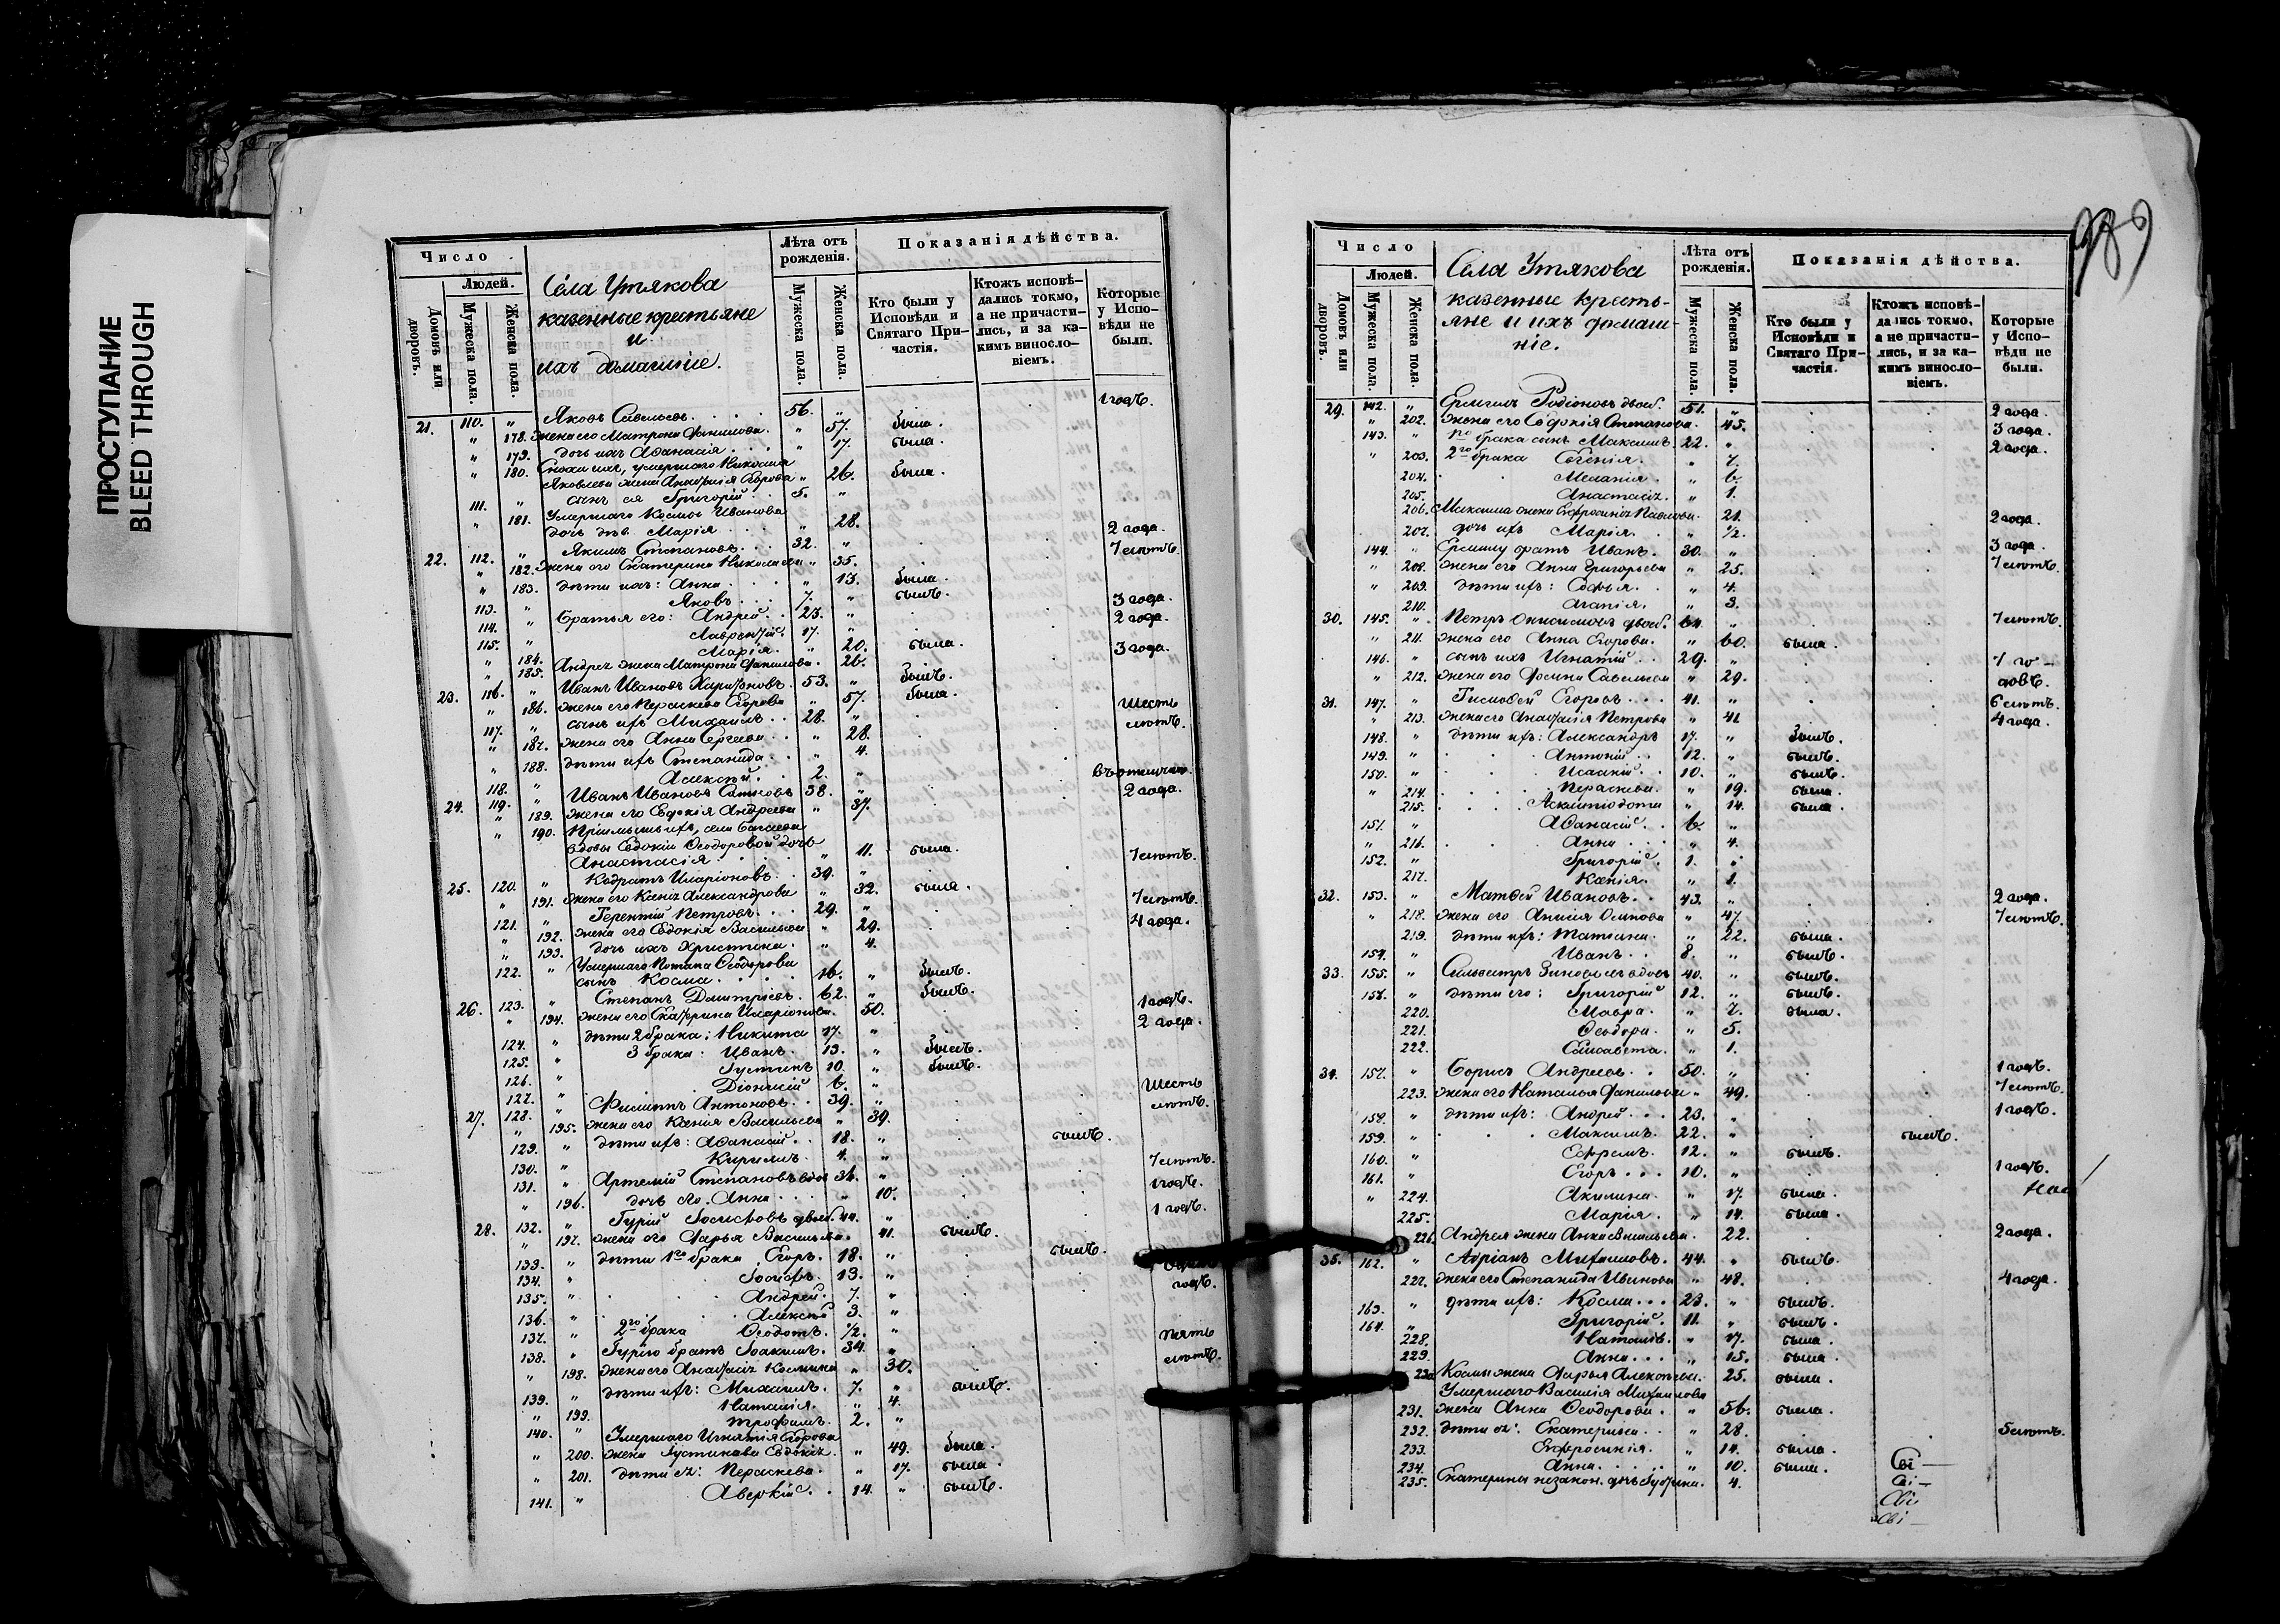 ПРОСТУПАНИЕ
BLEED THROUGH
989
Число
Людей.
Домовъ или дворовъ.
Мужеска пола.
Женска пола.
Села Утякова
казенные крестьяне
и
ихъ домашніе.
Лѣта отъ рожденія.
Мужеска пола.
Женска пола.
Показанія дѣйства.
Кто были у Исповѣди и Святаго Причастія.
Ктожъ исповѣдались токмо, а не причастились, и за какимъ винословіемъ.
Которые у Исповѣди не были.
21. 110. " Яковъ Савельевъ. 56. " 1 годъ.
" 178. Жена его Матрона Данилова. " 57. была.
" 179. дочь ихъ Аѳанасія " 17. была.
" 180. Сноха ихъ, умершаго Николая
Яковлева жена Анастасія Егорова " 26. была.
111. " сынъ ея Григорій 5. "
" 181. Умершаго Космы Иванова
дочь дѣв. Марія " 28. 2 года.
22. 112. " Якимъ Степановъ. 32. " 7 лѣтъ.
" 182. Жена его Екатерина Николаева " 35.
" 183. дѣти ихъ: Анна " 13. была.
113. " Яковъ 7. " былъ.
114. " Братья его: Андрей. 23. " 3 года.
115. " Лаврентій. 17. " 2 года.
" 184. Марія. " 20. была.
" 185. Андрея жена Матрона Данилова. 26. 3 года.
23. 116. " Иванъ Ивановъ Харитоновъ. 53. " былъ.
" 186. жена его Параскева Егорова " 57. была.
117. " сынъ ихъ Михаилъ. 28. " шесть лѣтъ.
" 187. жена его Анна Сергеева " 28.
" 188. дѣти ихъ Степанида. " 4.
118. " Алексѣй. 2. "
24. 119. " Иванъ Ивановъ 38. " въ отлучкѣ
" 189. жена его Евдокія Андреева " 37. 2 года.
" 190. ихъ, села
вдовы Евдокіи Ѳеодоровой дочь
Анастасія " 11. была.
25. 120. " Кодратъ Иларіоновъ. 39. " 7 лѣтъ.
" 191. жена его Ксенія Александрова " 32. была.
121. " Терентій Петровъ. 29. " 7 лѣтъ.
" 192. жена его Евдокія Васильева " 29. 4 года.
" 193. дочь ихъ Христина. " 4.
122. " Умершаго Потапа Ѳеодорова
сынъ Косма. 16. " былъ.
26. 123. " Степанъ Дмитріевъ. 62. " былъ.
" 194. жена его Екатерина Иларіонова. 50. 1 годъ.
124. " дѣти 2 брака: Никита 17. " 2 года.
125. " 3 брака: Иванъ. 13. " былъ.
126. " Густинъ 10. " былъ.
127. " Діонисій 6. "
27. 128. " Филиппъ Антоновъ. 39. " шесть лѣтъ.
" 195. жена его Ксенія Васильева " 39.
129. " дѣти ихъ: Аѳанасій. 18. " былъ.
130. " Кирилъ. 4. "
131. " Артемій Степановъ вдов 36. " 7 лѣтъ.
" 196. дочь его Анна " 10. 1 годъ.
28. 132. " Гурій Іосифовъ двоеб. 44. " 1 годъ.
" 197. жена его Дарья Васильева. 41. былъ.
133. " дѣти 1го брака Егоръ. 18. " былъ.
134. " Іосифъ. 13. " годъ.
135. " Андрей. 7. "
136. " Алексѣй 3. "
137. " 2го брака Ѳеодотъ. 1/2. "
138. " Гурію братъ Іоакимъ. 34. " пять лѣтъ.
" 198. жена его Анастасія Космина " 30.
139. " дѣти ихъ: Михаилъ. 7. " былъ.
" 199. Наталія. " 4.
140. " Трофимъ. 2. "
Умершаго Игнатія Егорова
" 200. жена Густинова Евдокія. " 49. была.
" 201. дѣти ея: Параскева. " 17. была.
141. " Аверкій. 14. " былъ.
Число
Людей.
Домовъ или дворовъ.
Мужеска пола.
Женска пола.
Села Утякова
казенные кресть-
яне и ихъ домаш-
ніе.
Лѣта отъ рожденія.
Мужеска пола.
Женска пола.
Показанія дѣйства.
Кто были у Исповѣди и Святаго Причастія.
Ктожъ исповѣдались токмо, а не причастились, и за какимъ винословіемъ.
Которые у Исповѣди не были.
29. 142. " Ермилъ Родіоновъ двоеб. 51. " 2 года.
" 202. Жена его Евдокія Степанова. 45. 3 года.
143. " 1го брака сынъ Максимъ. 22. " 2 года.
" 203. 2го брака Евгенія. " 7.
204. Меланія. " 6.
205. Анастасія. " 1.
206. Максима жена Ефросинія Павлова. 21. 2 года.
207. дочь ихъ Марія. " 1/2.
144. " Ермилу братъ Иванъ. 30. " 3 года.
" 208. жена его Анна Григорьева " 25. 7 лѣтъ.
" 209. дѣти ихъ: Софья. " 4.
210. Агапія. " 3.
30. 145. " Петръ Онисимовъ двоеб. 64. " 7 лѣтъ.
" 211. жена его Анна Егорова. " 60. была.
146. " сынъ ихъ Игнатій. 29. " 7 го-
" 212. жена его Фокина Савельева " 29. довъ.
31. 147. " Тимоѳей Егоровъ 41. " 6 лѣтъ.
" 213. жена его Анастасія Петрова " 41 4 года.
148. " дѣти ихъ: Александръ 17. " былъ.
149. " Антоній. 12. " былъ.
150. " Исаакій. 10. " былъ.
" 214. Параскева. " 19. была.
215. Асклипіодота " 14. была.
151. " Аѳанасій. 6. "
" 216. Анна " 4.
152. " Григорій. 1. "
217. Ксенія. " 1.
32. 153. " Матвей Ивановъ. 43. " 2 года.
" 218. жена его Анисія Осипова " 47. 7 лѣтъ.
219. дѣти ихъ: Татіана. " 22. была.
154. " Иванъ. 8. " былъ.
33. 155. " Сильвестръ Зиновьевъ вдовъ 40. " былъ.
156. " дѣти его: Григорій 12. " былъ.
220. Мавра. " 7. была.
221. Ѳеодора. " 5.
222. Елисавета. " 1.
34. 157. " Борисъ Андреевъ. 50. " 1 годъ.
223. жена его Наталья Данилова " 49. 7 лѣтъ.
158. " дѣти ихъ: Андрей. 23. " 1 годъ.
159. " Максимъ. 22. " былъ.
160. " Ефремъ. 12. " былъ.
161. " Егоръ 10. " 1 годъ.
" 224. Акилина. " 17. была.
225. Марія. " 14. была.
226. Андрея жена Анна Васильева. 22. 2 года.
35. 162. " Адріанъ Михаиловъ. 44. " былъ.
227. жена его Степанида Иванова " 48. 4 года.
163. " дѣти ихъ: Косма 23. " былъ.
164. " Григорій. 11. " былъ.
228. Наталія. " 17. была.
229. Анна " 15. была.
230 Космы жена Дарья Алексѣева. 25. была.
Умершаго Василія Михаилова
231. жена Анна Ѳеодорова. " 56. была.
232. дѣти ея: Екатерина. " 28. 5 лѣтъ.
233. Ефросинія. " 14. была.
234. Анна " 10. была.
235. Екатерины незакон. дочь 4.